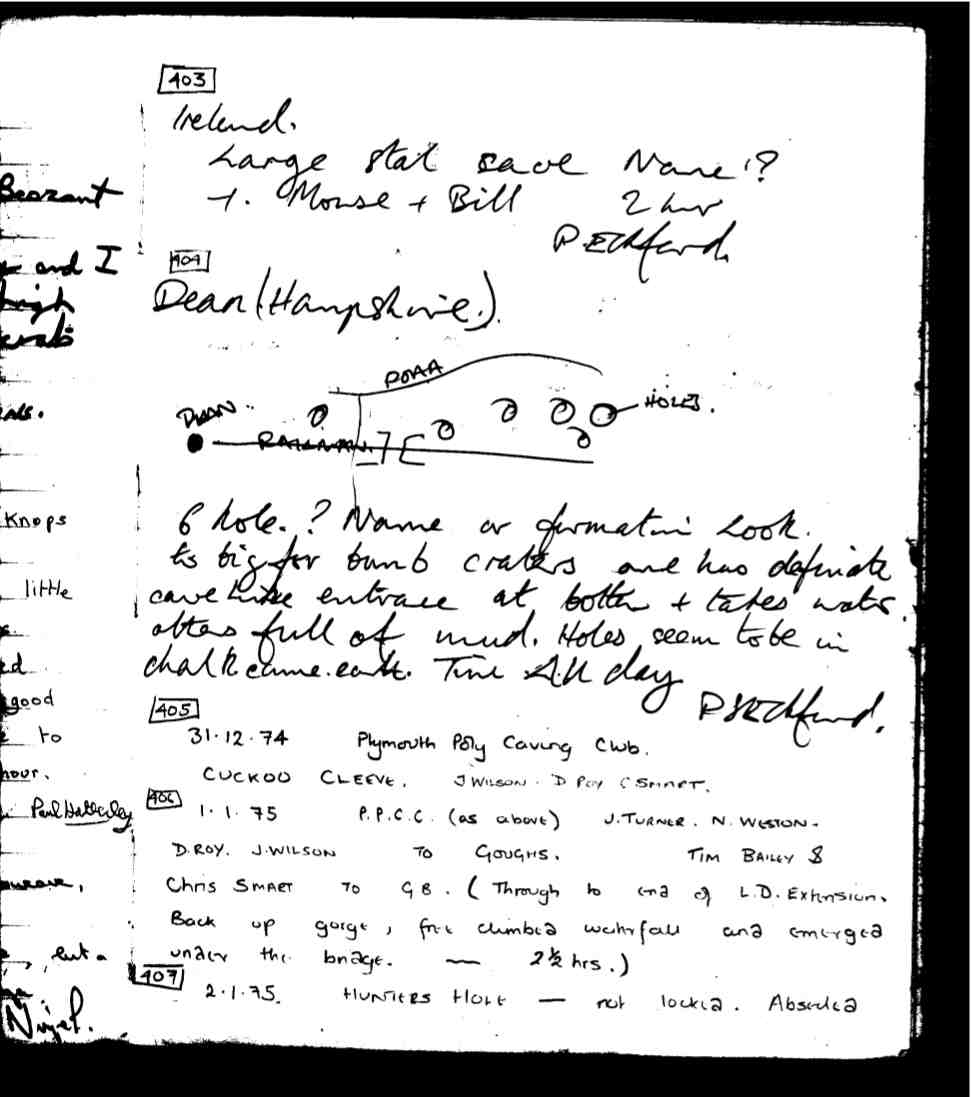 403
Ireland.
Large stal cave Name?
+. Mouse + Bill 2 hr
404
Dean (Hampshire.)
ROAD
DEAN
HOLES.
RAILWAY
6 hole. ? Name or formation Look.
to big for bumb craters one has definate
cave like entrace at bottom + takes water.
others full of mud. Holes seem to be in
chalk came. earth. Time All day
405
31.12.74 Plymouth Poly Caving Club.
CUCKOO CLEEVE. J WILSON. D ROY C SMART.
406
1.1.75 P.P.C.C. (as above) J. TURNER. N. WESTON.
D. ROY. J. WILSON TO GOUGHS. TIM BAILEY &
Chris SMART TO G B. (Through to end of L.D. Extension.
Back up gorge, free climbed waterfall and emerged
under the bridge. — 2½ hrs.)
407
2.1.75. HUNTERS HOLE — not locked. Abseiled
Bearant
and I
als.
Knops
little
ed
good
to
hour.
Paul Hatherley
but a
Nigel.